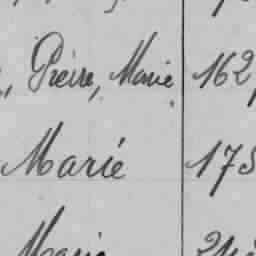 , Pierre, Marie 162
Marié 175
Marie